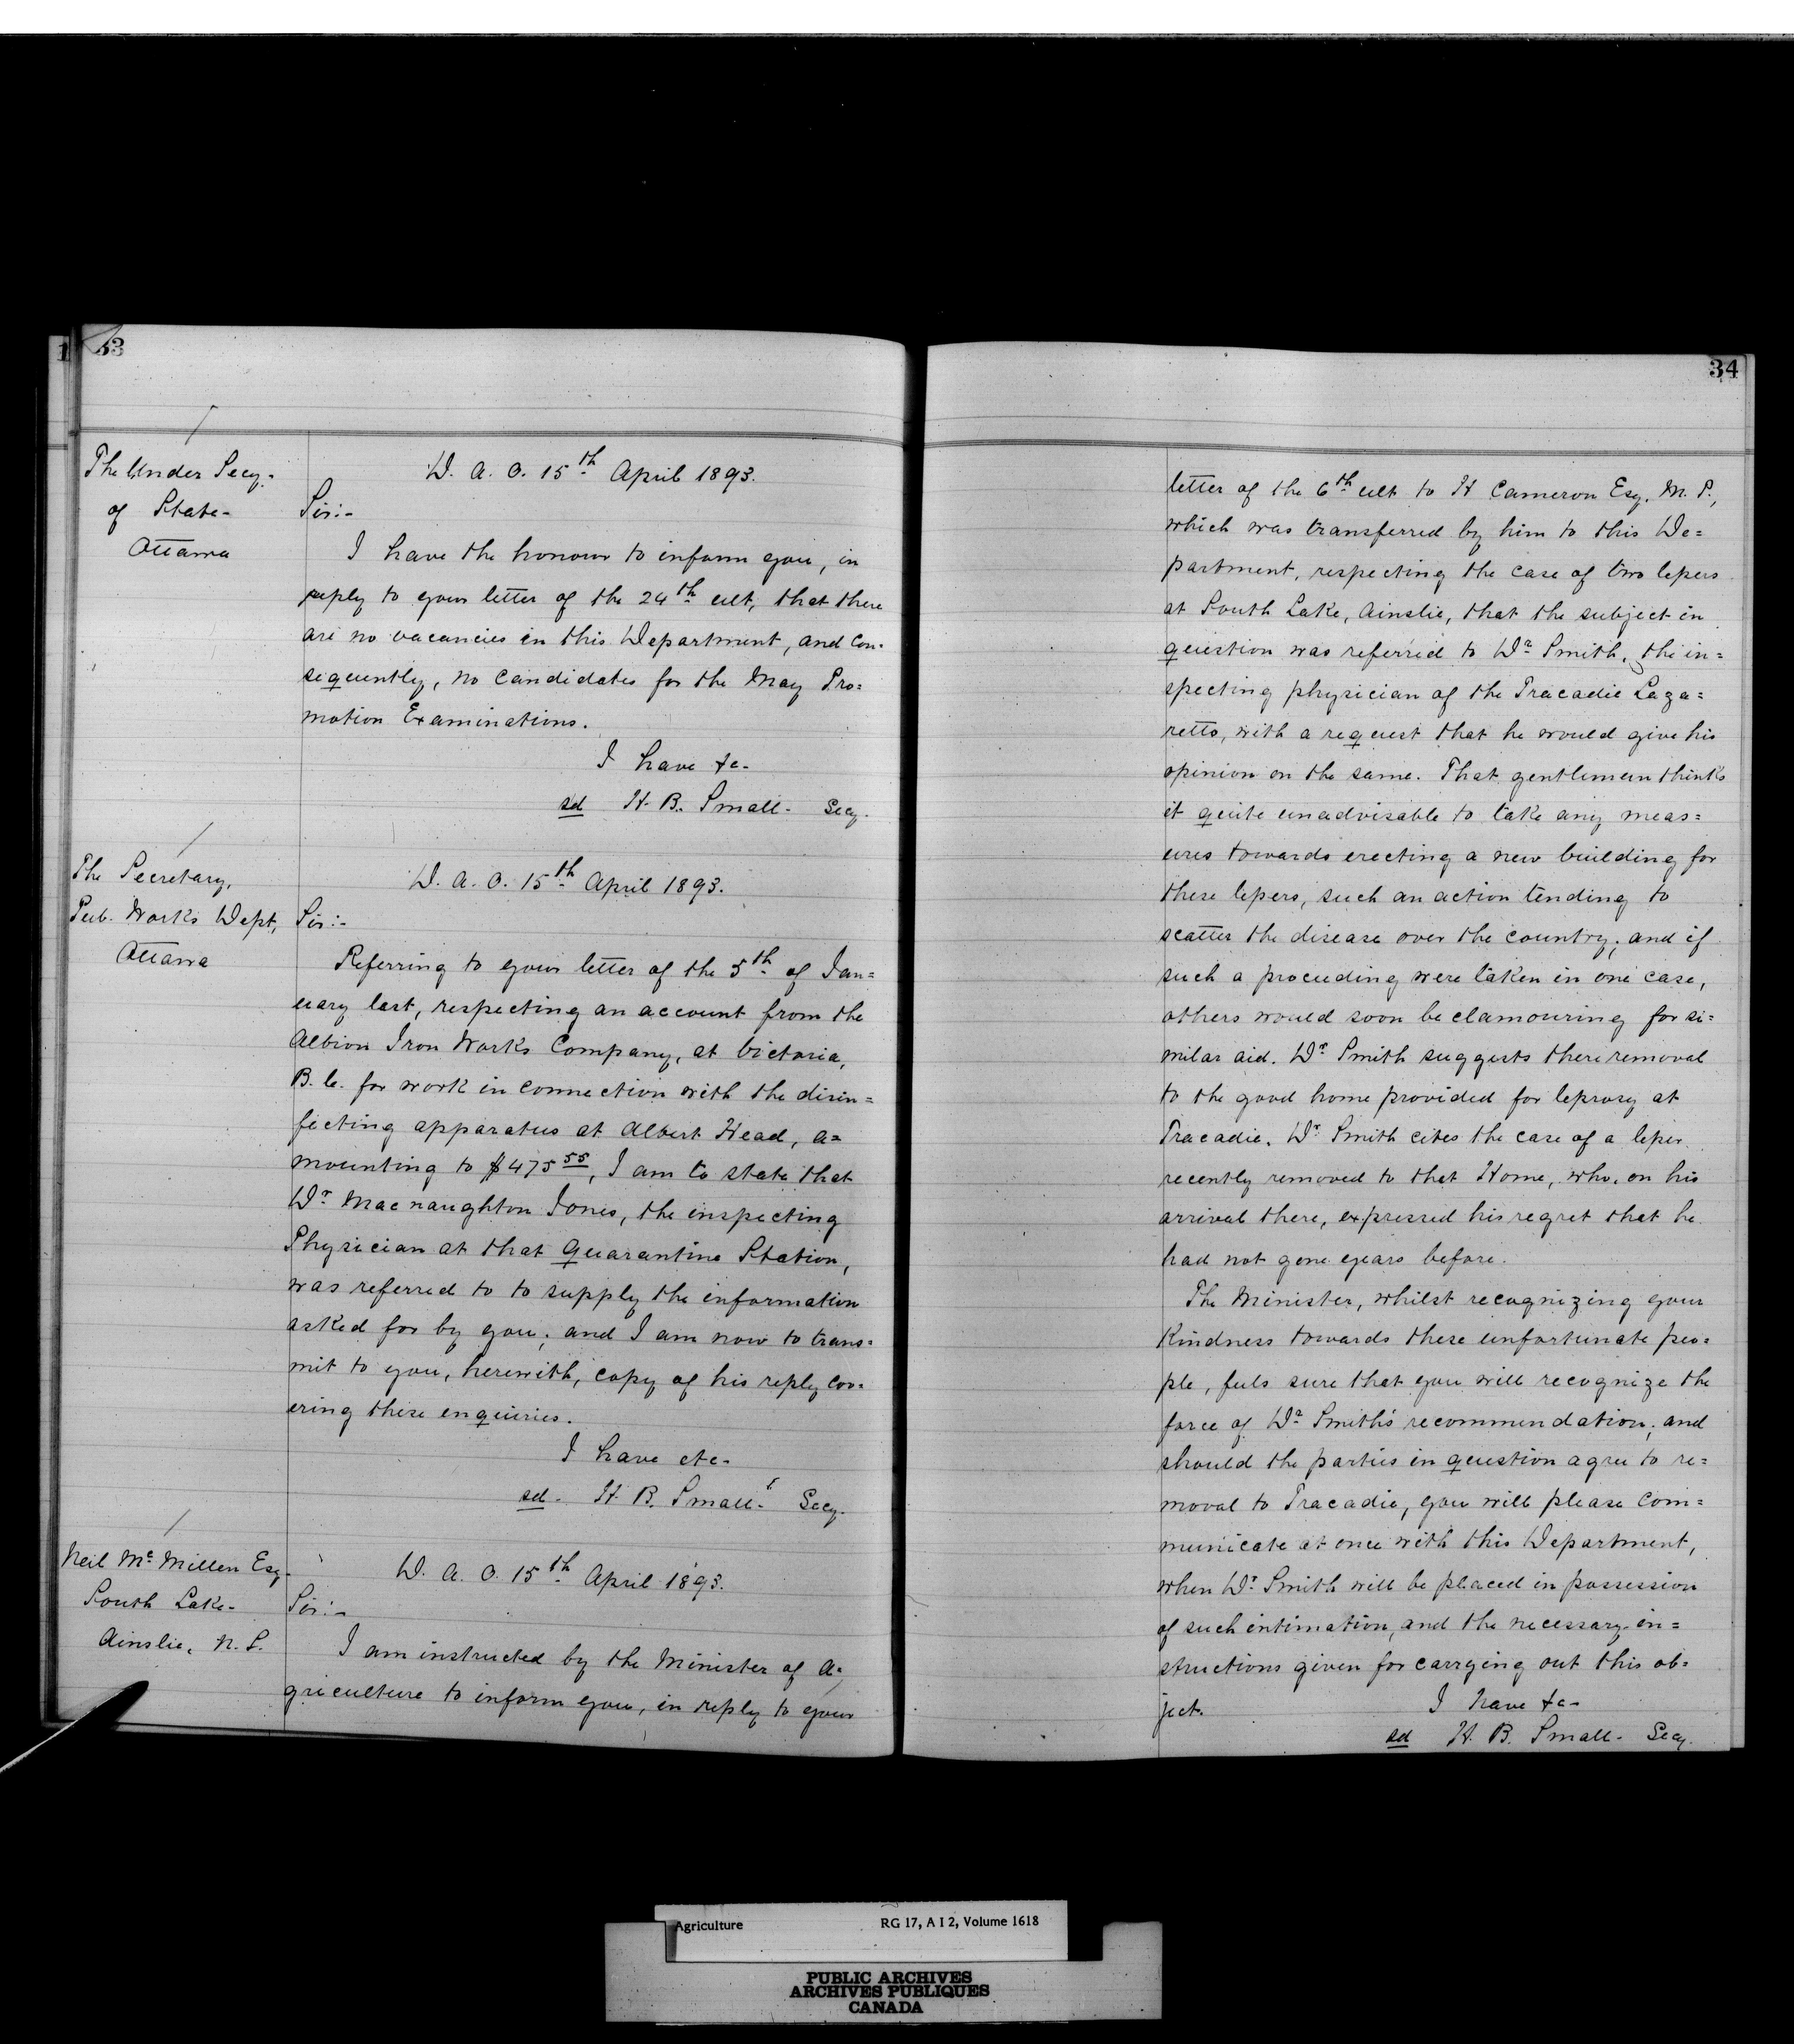 33
The Under Secy.
of State-
Ottawa
D. A. O. 15th April 1893.
Sir:-
I have the honour to inform you, in
reply to your letter of the 24th ult, that there
are no vacancies in this Department, and con-
sequently, no candidates for the May Pro=
motion Examinations.
I have &c-
sd H. B. Small- Secy.
The Secretary,
Pub. Works Dept,
Ottawa
D. A. O. 15th April 1893.
Sir:-
Referring to your letter of the 5th of Jan=
uary last, respecting an account from the
Albion Iron Works Company, at Victoria,
B. C. for work in connection with the disin=
fecting apparatus at Albert Head, a=
mounting to $475 55, I am to state that
Dr Macnaughton Jones, the inspecting
Physician at that Quarantine Station,
was referred to to supply the information
asked for by you; and I am now to trans=
mit to you, herewith, copy of his reply cov=
ering these enquiries.
I have etc-
sd- H. B. Small- Secy.
Neil Mc Millen Esq-
South Lake-
Ainslie, N. S.
D. A. O. 15th April 1893.
Sir:-
I am instructed by the Minister of A=
griculture to inform you, in reply to your
34
letter of the 6th ult to H Cameron Esq. M. P.,
which was transferred by him to this De=
partment, respecting the case of two lepers
at South Lake, Ainslie, that the subject in
question was referred to Dr Smith, the in=
specting physician of the Tracadie Laza=
retto, with a request that he would give his
opinion on the same. That gentleman thinks
it quite unadvisable to take any meas=
ures towards erecting a new building for
these lepers, such an action tending to
scatter the disease over the country; and if
such a proceeding were taken in one case,
others would soon be clamouring for si=
milar aid. Dr Smith suggests there removal
to the good home provided for leprosy at
Tracadie. Dr Smith cites the case of a leper
recently removed to that Home, who, on his
arrival there, expressed his regret that he
had not gone years before.
The Minister, whilst recognizing your
kindness towards these unfortunate peo=
ple, feels sure that you will recognize the
force of Dr Smith's recommendation; and
should the parties in question agree to re=
moval to Tracadie, you will please com=
municate at once with this Department,
when Dr Smith will be placed in possession
of such intimation, and the necessary in=
structions given for carrying out this ob=
ject. I have &c-
sd H. B. Small- Secy.
Agriculture RG 17, A I 2, Volume 1618
PUBLIC ARCHIVES
ARCHIVES PUBLIQUES
CANADA